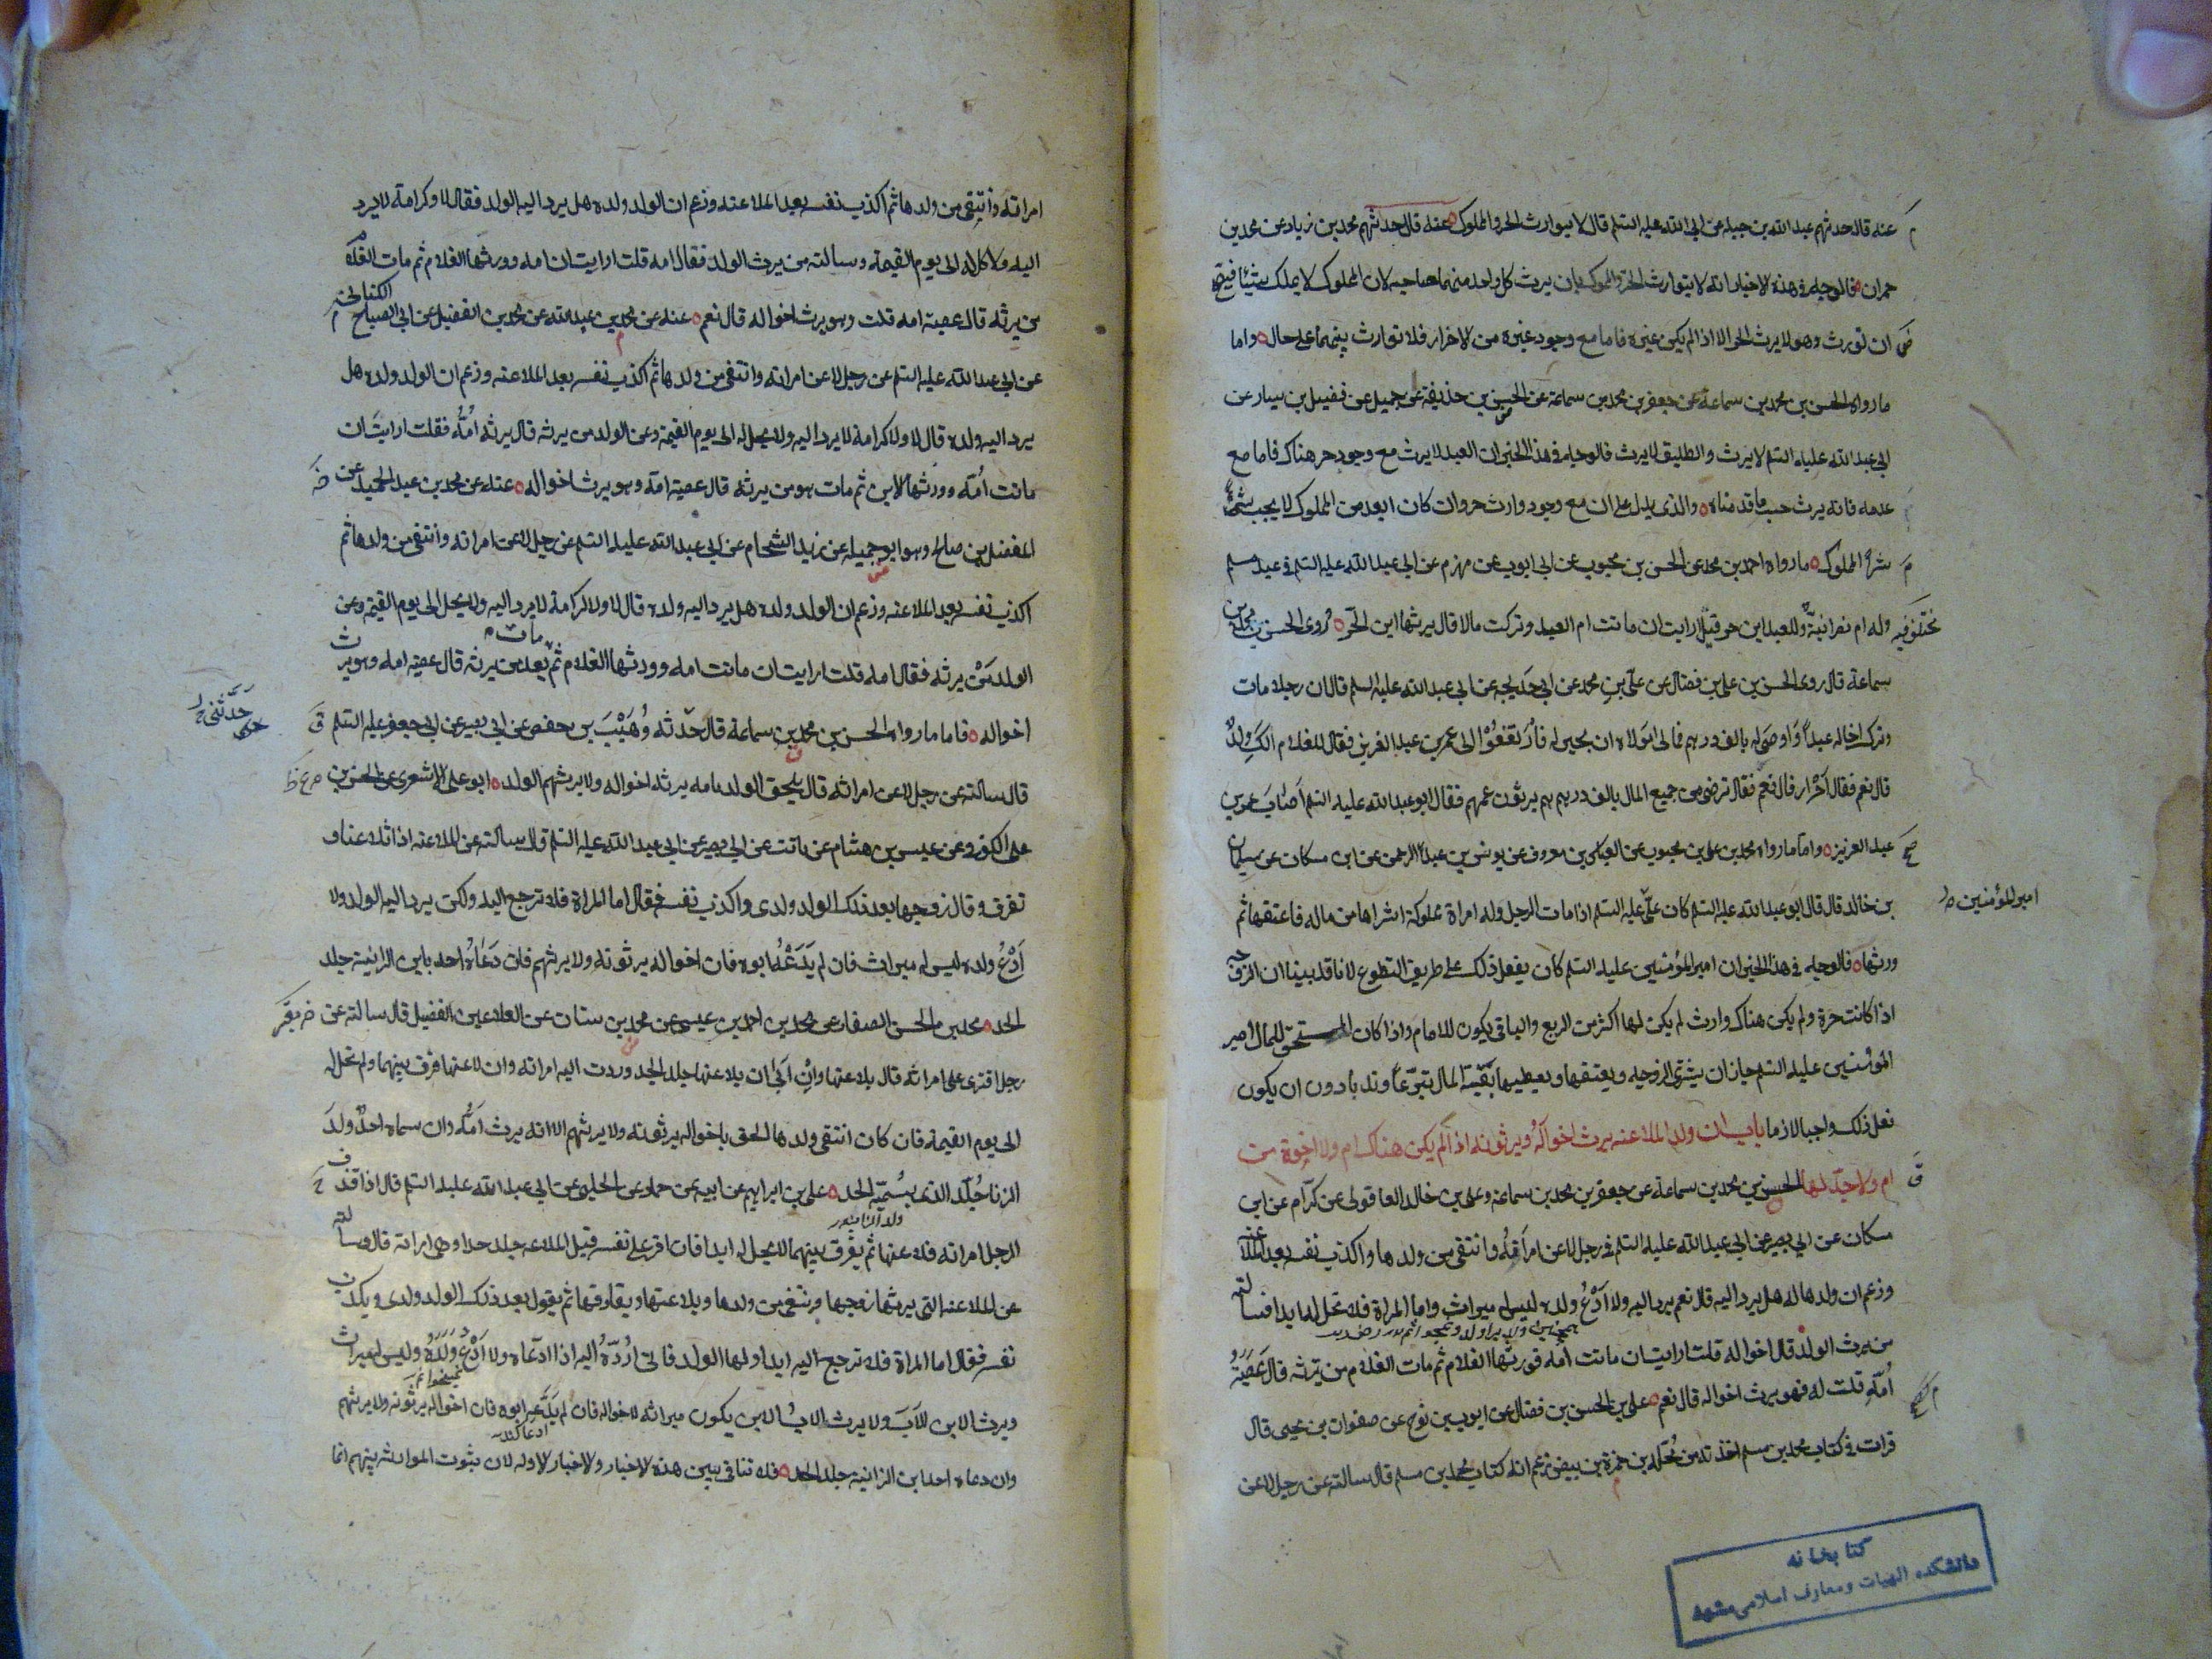 عنه قال حدثهم عبد الله بن جبله عن ابي عبد الله عليه السلم قال لا يتوارث الحر والمملوك عنه قال حدثهم محمد بن زياد عن محمد بن
حمران فالوجه في هذه الاخبار انه لا يتوارث الحر والمملوك بان يرث كل واحد منهما صاحبه لان المملوك لا يملك شيئا فيصح
ان يورث وهو لا يرث الحر الا اذا لم يكن غيره فاما مع وجود غيره من الاحرار فلا توارث بينهما على حال واما
ما رواه الحسن بن محمد بن سماعة عن جعفر بن محمد بن سماعة عن الحسن بن حذيفة عن جميل عن فضيل بن يسار عن
ابي عبد الله عليه السلم لا يرث والطليق لا يرث فالوجه في هذا الخبر ان العبد لا يرث مع وجود حر هناك فاما مع
عدمه فانه يرث حسب ما قدمناه والذي يدل على ان مع وجود وارث حر وان كان ابعد من المملوك لا يجب
شرآ المملوك ما رواه احمد بن محمد عن الحسن بن محبوب عن ابي ايوب عن مهزم عن ابي عبد الله عليه السلم في عبد مسلم
وله ام نصرانية وللعبد ابن حر قيل ارايت ان ماتت ام العبد وتركت مالا قال يرثها ابن الحر روى الحسن بن محمد بن
سماعة قال روى الحسن بن علي بن فضال عن علي بن محمد عن ابي خديجة عن ابي عبد الله عليه السلم قال ان رجلا مات
وترك اخا له عبدا واوصى له بالف درهم فابى مولاه ان يجيز له فارتفعوا الى عمر بن عبد العزيز فقال للغلام الك ولد
قال نعم فقال احرار قال نعم فقال ترضى من جميع المال بالف درهم هم يرثون عمهم فقال ابو عبد الله عليه السلم اصاب عمر بن
عبد العزيز واما ما رواه محمد بن علي بن محبوب عن العباس بن معروف عن يونس بن عبد الرحمن عن ابن مسكان عن سليمان
امير المؤمنين
بن خالد قال قال ابو عبد الله عليه السلم كان علي عليه السلم اذا مات الرجل وله امراة مملوكة اشتراها من ماله فاعتقها ثم
ورثها فالوجه في هذا الخبر ان امير المؤمنين عليه السلم كان يفعل ذلك على طريق التطوع لانا قد بينا ان الزوجه
اذا كانت حرة ولم يكن هناك وارث لم يكن لها اكثر من الربع والباقي يكون للامام واذا كان المستحق للمال امير
المؤمنين عليه السلم جاز ان يشتري الزوجه ويعتقها ويعطيها بقية المال تبرعا وندبا دون ان يكون
فعل ذلك واجبا لازما باب ان ولد الملاعنه يرث اخواله ويرثونه اذا لم يكن هناك ام ولا اخوة من
ام ولا جد لها الحسن بن محمد بن سماعة عن جعفر بن محمد بن سماعة وعلي بن خالد العاقولي عن كرام عن ابن
مسكان عن ابي بصير عن ابي عبد الله عليه السلم في رجل لاعن امراته وانتفى من ولدها واكذب نفسه بعد الملاعنة
وزعم ان ولدها له هل يرد اليه قال نعم يرد اليه ولا ادع ولده ليس له ميراث واما المراة فلا تحل له ابدا فسالته
من يرث الولد قال اخواله قلت ارايت ان ماتت امه فورثها الغلام ثم مات الغلام من يرثه قال عصبة
امه قلت له فهو يرث اخواله قال نعم علي بن الحسن بن فضال عن ايوب بن نوح عن صفوان بن يحيى قال
قرات في كتاب محمد بن مسلم اخذته من مخلد بن حمزة بن بيض زعم انه كتاب محمد بن مسلم قال سالته عن رجل لاعن
كتابخانه
دانشكده الهيات ومعارف اسلامى مشهد
امراته وانتفى من ولدها ثم اكذب نفسه بعد الملاعنه وزعم ان الولد ولده هل يرد اليه الولد فقال لا ولا كرامة لا يرد
اليه ولا تحل له الى يوم القيمة وسالته من يرث الولد فقال امه قلت ارايت ان امه وورثها الغلام ثم مات الغلام
من يرثه قال عصبة امه قلت وهو يرث اخواله قال نعم عنه عن محمد بن عبد الله عن محمد بن الفضيل عن ابي الصباح الكناني
عن ابي عبد الله عليه السلم عن رجل لاعن امراته وانتفى من ولدها ثم اكذب نفسه بعد الملاعنه وزعم ان الولد ولده هل
يرد اليه ولده قال لا ولا كرامة لا يرد اليه ولا يحل له الى يوم القيمة وعن الولد من يرثه قال يرثه امه فقلت ارايت ان
ماتت امه وورثها الابن ثم مات هو من يرثه قال عصبة امه وهو يرث اخواله عنه عن محمد بن عبد الحميد عن
المفضل بن صالح وهو ابو جميله عن زيد الشحام عن ابي عبد الله عليه السلم عن رجل لاعن امراته وانتفى من ولدها ثم
اكذب نفسه بعد الملاعنه وزعم ان الولد ولده هل يرد اليه ولده قال لا ولا كرامة لا يرد اليه ولا يحل الى يوم القيمه وعن
الولد من يرثه فقال امه قلت ارايت ان ماتت امه وورثها الغلام ثم مات بعد من يرثه قال عصبه امه وهو يرث
حدثني
اخواله فاما ما رواه الحسن بن محمد بن سماعة قال حدثه وهيب بن حفص عن ابي بصير عن ابي جعفر عليه السلم
قال سالته عن رجل لاعن امراته قال يلحق الولد بامه يرثه اخواله ولا يرثهم الولد ابو علي الاشعري عن الحسن بن
علي الكوفي عن عبيس بن هشام عن ثابت عن ابي بصير عن ابي عبد الله عليه السلم قال سالته عن الملاعنه اذا تلاعنا و
تفرقا وقال زوجها بعد ذلك الولد ولدي واكذب نفسه فقال اما المراة فلا ترجع اليه ولكن يرد اليه الولد ولا
ادع ولده ليس له ميراث فان لم يدعه ابوه فان اخواله يرثونه ولا يرثهم فان دعاه احد بابن الزانية جلد
الحد محمد بن الحسن الصفار عن محمد بن احمد بن عيسى عن محمد بن سنان عن العلا عن الفضيل قال سالته عن
رجل افترى على امراته قال يلاعنها وان ابى ان يلاعنها جلد الحد وردت اليه امراته وان لاعنها فرق بينهما ولم تحل له
الى يوم القيمة فان كان انتفى ولدها الحق باخواله يرثونه ولا يرثهم الا انه يرث امه وان سماه احد ولد
الزنا جلد الذي يسميه الحد علي بن ابراهيم عن ابيه عن حماد عن الحلبي عن ابي عبد الله عليه السلم قال اذا قذف
الرجل امراته فلاعنها ثم يفرق بينهما لا يحل له ابدا فان اقر على نفسه قبل الملاعنه جلد حدا وهي امراته قال وسالته
عن الملاعنه التي يرميها زوجها وينتفي من ولدها ويلاعنها ويفارقها ثم يقول بعد ذلك الولد ولدي ويكذب
نفسه فقال اما المراة فلا ترجع اليه ابدا واما الولد فاني ارده اليه اذا ادعاه ولا ادع ولده وليس له ميراث
ويرث الابن الاب ولا يرث الاب الابن يكون ميراثه لاخواله فان لم يدعه ابوه فان اخواله يرثونه ولا يرثهم
وان دعاه احد ابن الزانية جلد الحد فلا تنافي بين هذه الاخبار والاخبار الاوله لان ثبوت الموارثه بينهم انما